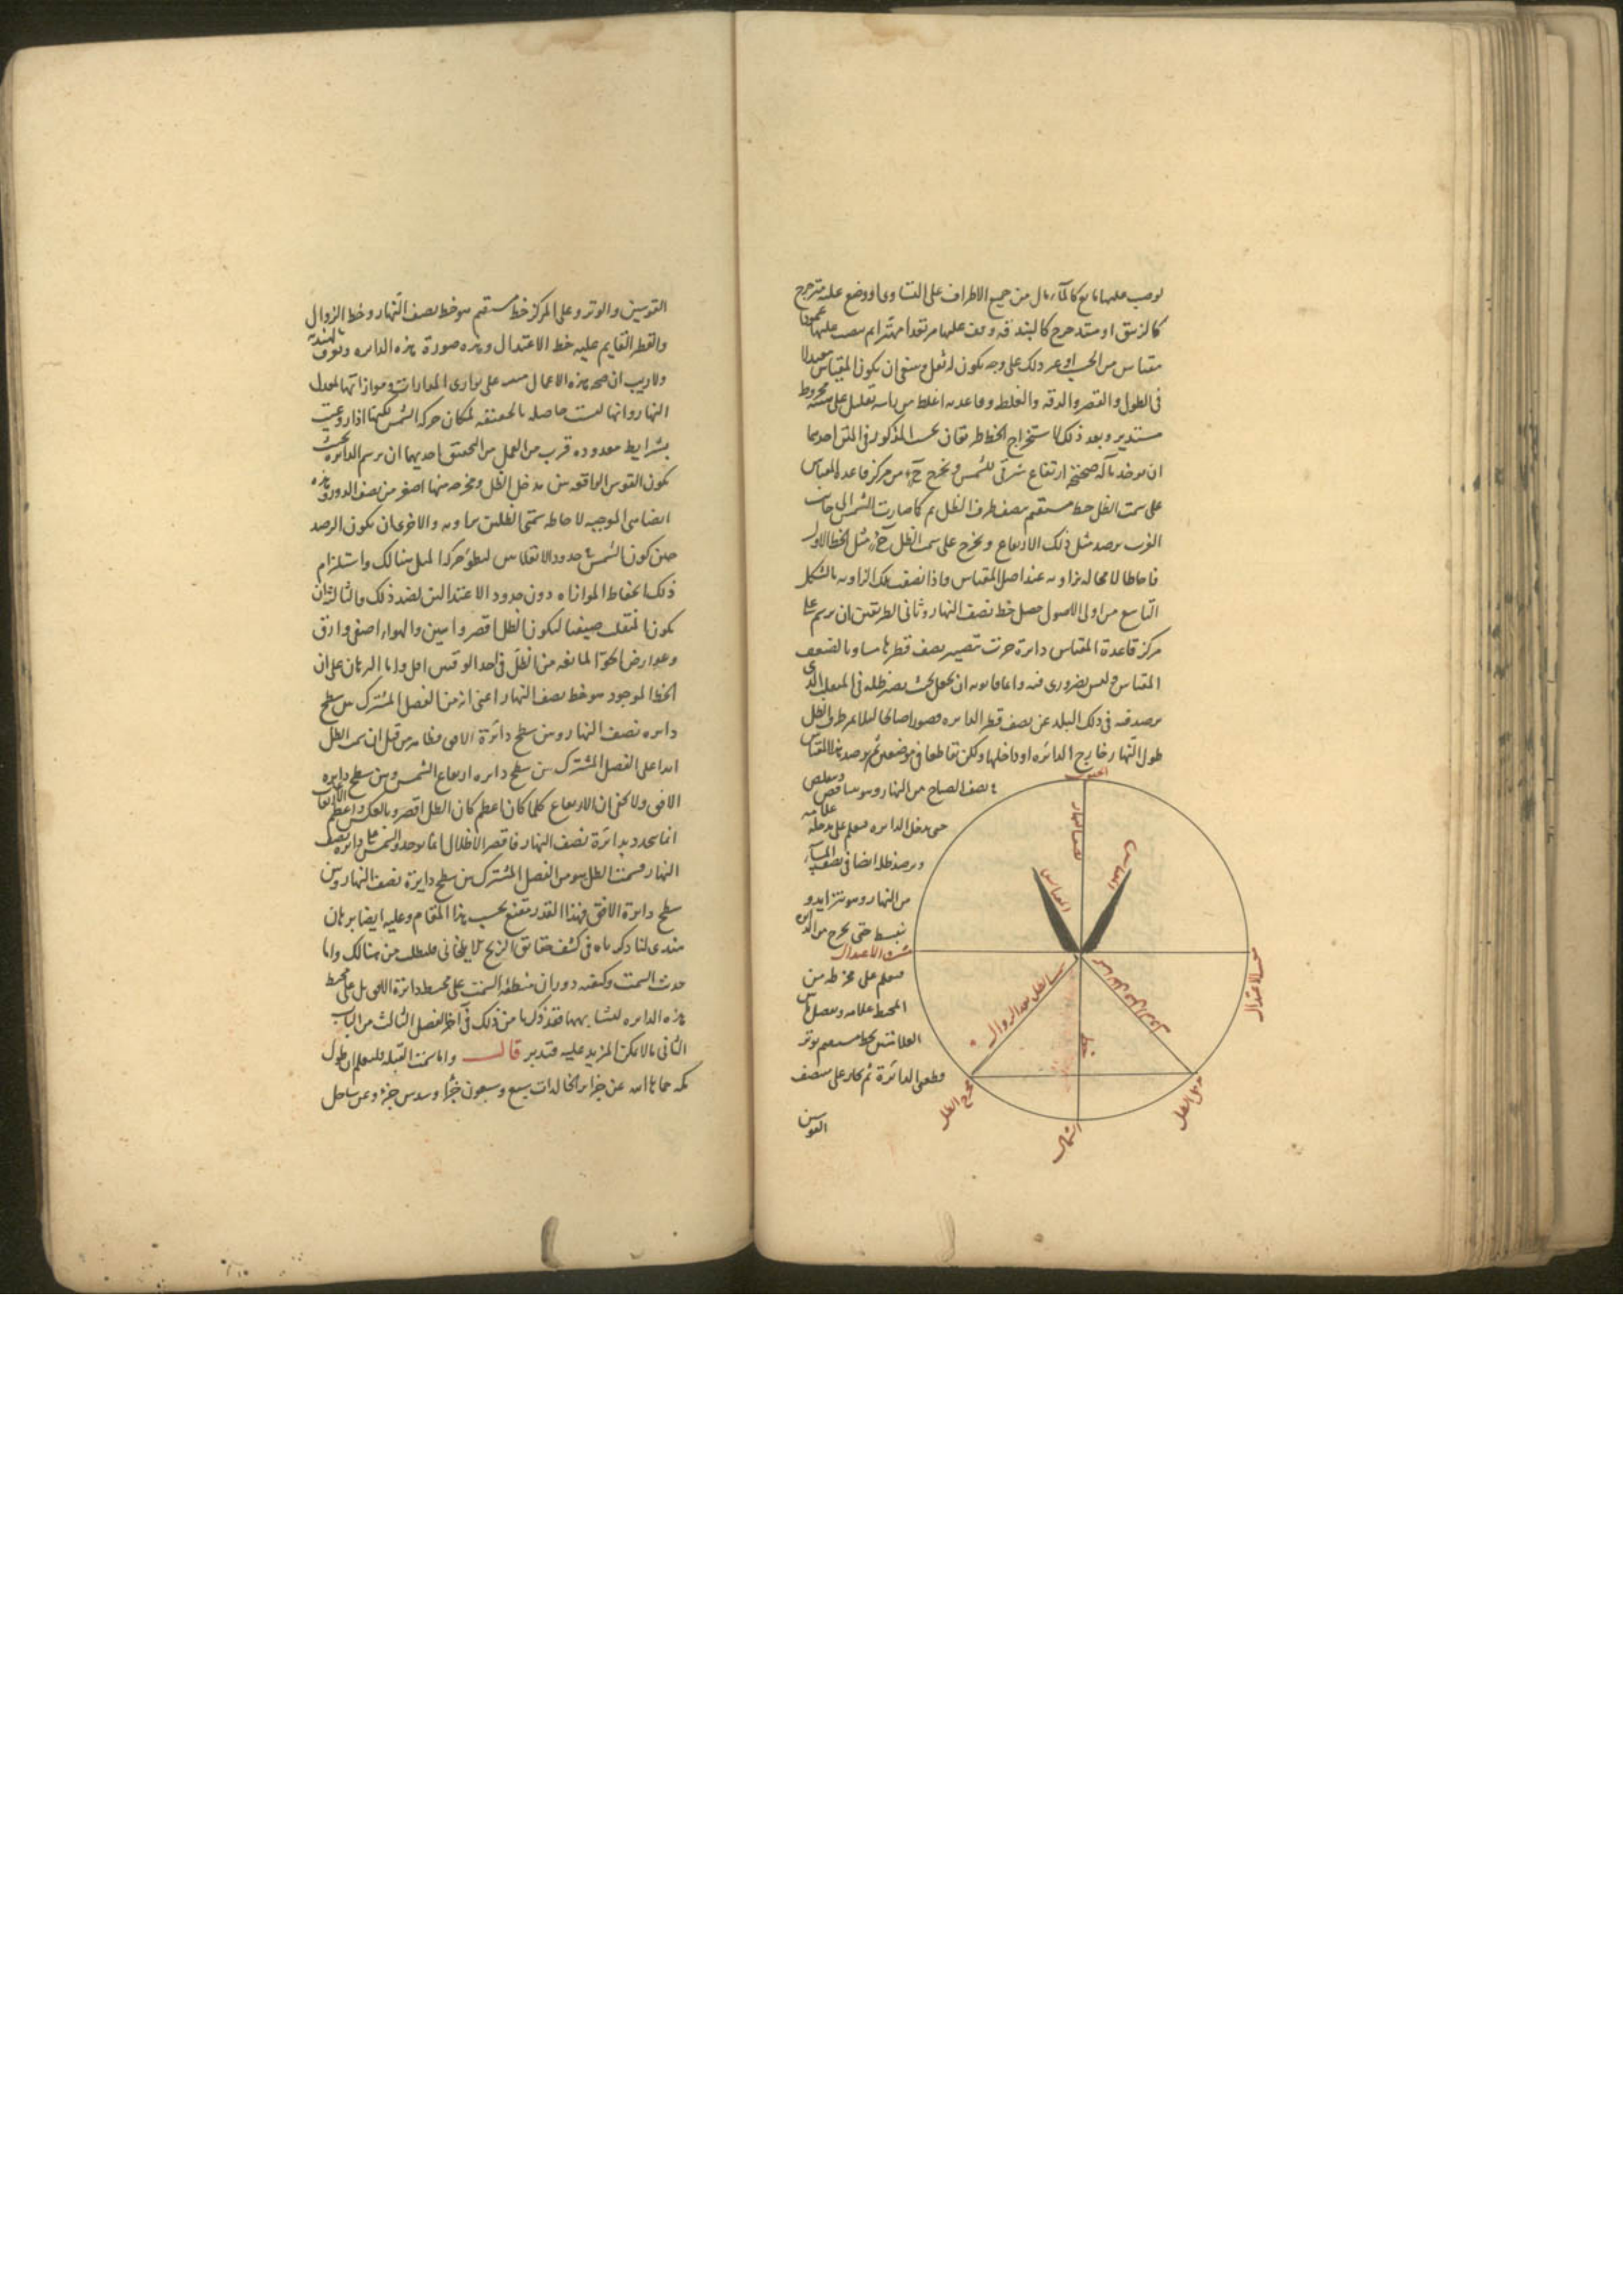 من جميع الاطراف على التساوى او وضع عليه مترجرج
كالزيبق او متدحرج كالبندقه وقف عليها مرتعدا مهتزا ثم ينصب عليها عمودا
مقياس من الخشب او غير ذلك على وجه يكون له ثقل وينبغى ان يكون المقياس معتدلا
فى الطول والقصر والدقه والغلظ وقاعدته اغلظ من راسه بقليل على هيئة مخروط
مستدير وبعد ذلك لاستخراج الخط طريقان بحسب المذكور فى المتن احدهما
ان يوخذ بآلة صحيحة ارتفاع شرقى للشمس ويخرج ح من مركز قاعدة المقياس
على سمت الظل خط مستقيم ينصف طرف الظل ثم كما صارت الشمس الى جانب
الغرب يرصد مثل ذلك الارتفاع ويخرج على سمت الظل ح مثل الخط الاول
فاحاطا لا محاله بزاويه عند اصل المقياس واذا نصفت تلك الزاويه بالشكل
التاسع من اولى الاصول حصل خط نصف النهار وثانى الطريقين ان يرسم على
مركز قاعدة المقياس دائرة جرت بتصيير نصف قطرها مساويا لضعف
المقياس وليس بضرورى فيه وانما فايدته ان يجعل بحيث يقصر ظله فى المنقلب الذى
يرصد فيه فى ذلك البلد عن نصف قطر الدايره قصورا صالحا ليلا يمر طرف الظل
طول النهار خارج الدائره او داخلها ولكن تقاطعا فى موضعين ثم يرصد ظل المقياس
فى نصف الصباح من النهار وهو يتناقص ويتقلص
حتى يدخل الدايره فيعلم على مدخله علامه
ويرصد ظله ايضا فى نصف المسآء
من النهار وهو يتزايد و
ينبسط حتى يخرج من الدايره
فيعلم على مخرجه من
المحيط علامه ويصل بين
العلامتين بخط مستقيم يوتر
قطعتى الدائرة ثم يجاز على منتصف
القوسين
الجنوب
نصف النهار
المقياس
المقياس
مشرق الاعتدال
مغرب الاعتدال
سمت الظل بعد الزوال
سمت الظل قبل الزوال
خط
مخرج الظل
مدخل الظل
الشمال
القوسين والوتر وعلى المركز خط مستقيم هو خط نصف النهار وخط الزوال
والقطر القايم عليه خط الاعتدال وهذه صورة هذه الدايره وتعرف بالهندية
ولا ريب ان صحه هذه الاعمال على توازى المدارات وموازاتها لمعدل
النهار وانها ليست حاصله بالحقيقه لمكان حركه الشمس لكنها اذا روعيت
بشرايط معدوده قرب من العمل من التحقيق احديها ان يرسم الدائره بحيث
يكون القوس الواقعه بين مدخل الظل ومخرجه منها اصغر من نصف الدور وهذه
ايضا هى الموجبه لاحاطه سمتى الظلين بزاويه والاخرى ان يكون الرصد
حين كون الشمس فى حدود الانقلابين لبطؤ حركه الميل هنالك واستلزام
ذلك انحفاظ الموازاه دون حدود الاعتدالين لضد ذلك والثالثة ان
يكون المنقلب صيفيا ليكون الظل اقصر وابين والهوا اصفى وارق
وعوارض الجو المانعه من الظل فى احد الوقتين اقل واما البرهان على ان
الخط الموجود هو خط نصف النهار اعنى انه من الفصل المشترك بين سطح
دايره نصف النهار وبين سطح دائرة الافق فظاهر من قبل ان سمت الظل
ابدا على الفصل المشترك بين سطح دايره ارتفاع الشمس وبين سطح دايره
الافق ولا يخفى ان الارتفاع كلما كان اعظم كان الظل اقصر وبالعكس واعظم الارتفاعات
انما يتحدد بدائرة نصف النهار فاقصر الاظلال انما يوجد والشمس على دايره نصف
النهار فسمت الظل هو من الفصل المشترك بين سطح دايرة نصف النهار وبين
سطح دائرة الافق فهذا القدر مقنع بحسب هذا المقام وعليه ايضا برهان
هندى لنا ذكرناه فى كشف حقائق الزيج الايلخانى فليطلب من هنالك واما
حديث السمت وكيفيه دوران منطقه السمت على محيط دائرة الافق بل على محيط
هذه الدايره لتشابههما فقد ذكرنا من ذلك فى آخر الفصل الثالث من الباب
الثانى ما لا يمكن المزيد عليه فتدبر قال واما سمت القبله فليعلم ان طول
مكه حماها الله عن جزاير الخالدات سبع وسبعون جزءا وسدس جزء وعن ساحل